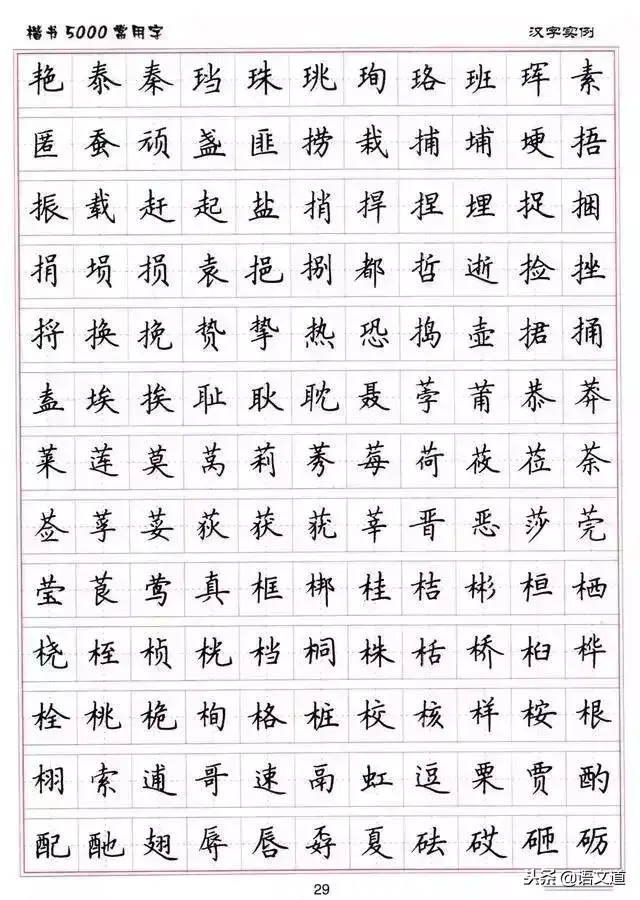 楷书5000常用字 汉字实例
艳泰秦珰珠珧珣珞班珲素
匿蚕顽盏匪捞栽捕埔埂捂
振载赶起盐捎捍捏埋捉捆
捐埙损袁挹捌都哲逝捡挫
捋换挽贽挚热恐捣壶捃捅
盍埃挨耻耿耽聂莩莆恭莽
莱莲莫莴莉莠莓荷莜莅荼
莶莩荽荻获莸莘晋恶莎莞
莹莨莺真框梆桂桔彬桓栖
桡桎桢桄档桐株栝桥桕桦
栓桃桅栒格桩校核样桉根
栩索逋哥速鬲虹逗栗贾酌
配酏翅辱唇孬夏砝砹砸砺
29
头条@语文道